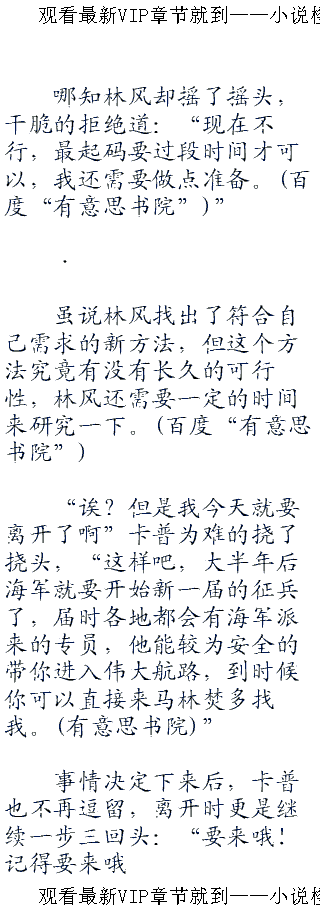 观看最新VIP章节就到——小说检
哪知林风却摇了摇头，
干脆的拒绝道：“现在不
行，最起码要过段时间才可
以，我还需要做点准备。(百
度“有意思书院”)”
.
虽说林风找出了符合自
己需求的新方法，但这个方
法究竟有没有长久的可行
性，林风还需要一定的时间
来研究一下。(百度“有意思
书院”)
“诶？但是我今天就要
离开了啊”卡普为难的挠了
挠头，“这样吧，大半年后
海军就要开始新一届的征兵
了，届时各地都会有海军派
来的专员，他能较为安全的
带你进入伟大航路，到时候
你可以直接来马林焚多找
我。(有意思书院)”
事情决定下来后，卡普
也不再逗留，离开时更是继
续一步三回头：“要来哦！
记得要来哦
观看最新VIP章节就到——小说检